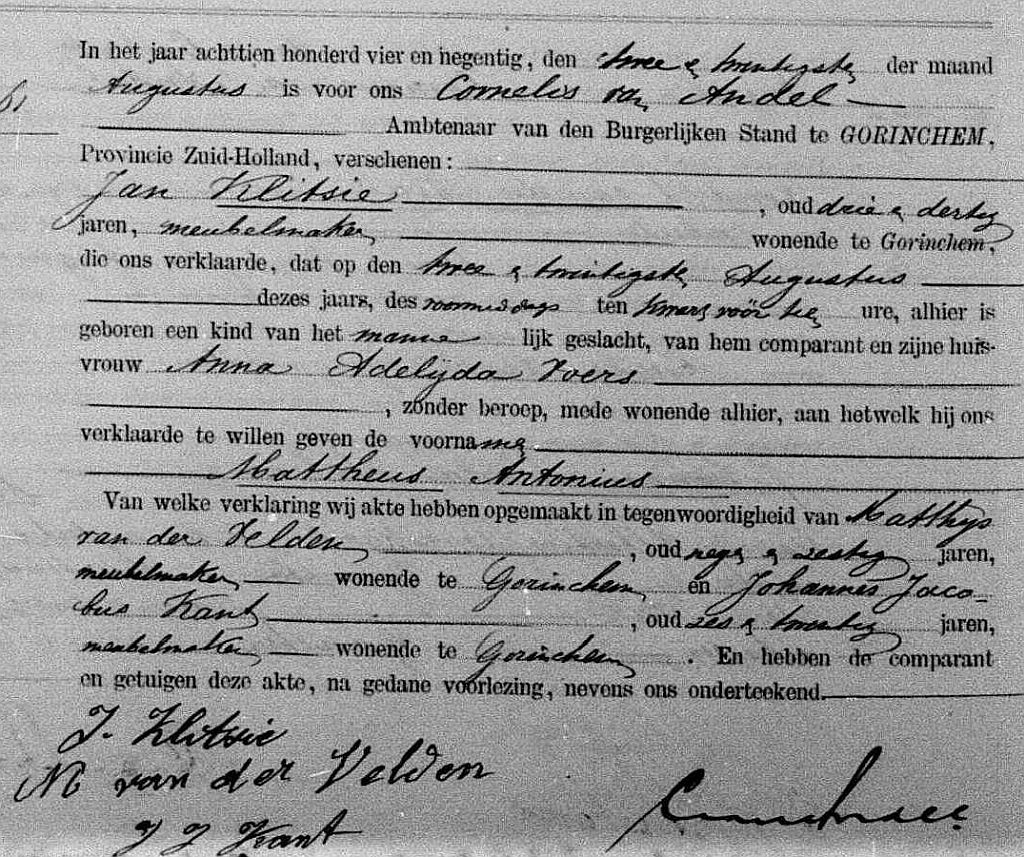 In het jaar achttien honderd vier en negentig, den twee & twintigste der maand
Augustus is voor ons Cornelis van Andel
Ambtenaar van den Burgerlijken Stand te GORINCHEM,
Provincie Zuid-Holland, verschenen:
Jan Klitsie, oud drie & dertig
jaren, meubelmaker, wonende te Gorinchem,
die ons verklaarde, dat op den twee & twintigste Augustus
dezes jaars, des voormiddags ten kwart vóór tien ure, alhier is
geboren een kind van het manne lijk geslacht, van hem comparant en zijne huis-
vrouw Anna Adelijda Voers
, zonder beroep, mede wonende alhier, aan hetwelk hij ons
verklaarde te willen geven de voorname
Mattheus Antonius
Van welke verklaring wij akte hebben opgemaakt in tegenwoordigheid van Matthijs
van der Velden, oud negen & zestig jaren,
meubelmaker, wonende te Gorinchem, en Johannes Jaco-
bus Kant, oud zes & twintig jaren,
meubelmaker, wonende te Gorinchem. En hebben de comparant
en getuigen deze akte, na gedane voorlezing, nevens ons onderteekend.
J. Klitsie
M van der Velden
J J Kant